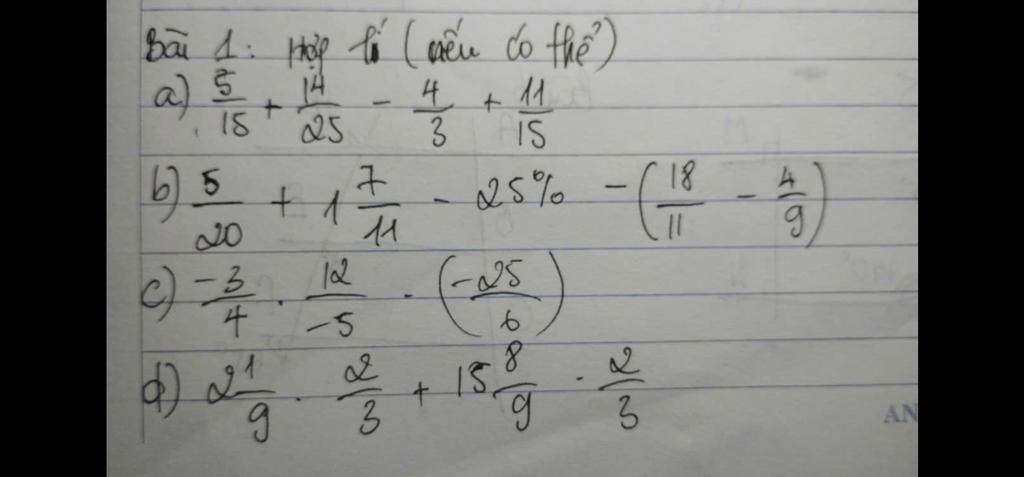 Bài 1: Hợp lí (nếu có thể)
a) 5/15 + 14/25 - 4/3 + 11/15
b) 5/20 + 1 7/11 - 25% - (18/11 - 4/9)
c) -3/4 . 12/-5 . (-25/6)
d) 2 1/9 . 2/3 + 15 8/9 . 2/3
AN